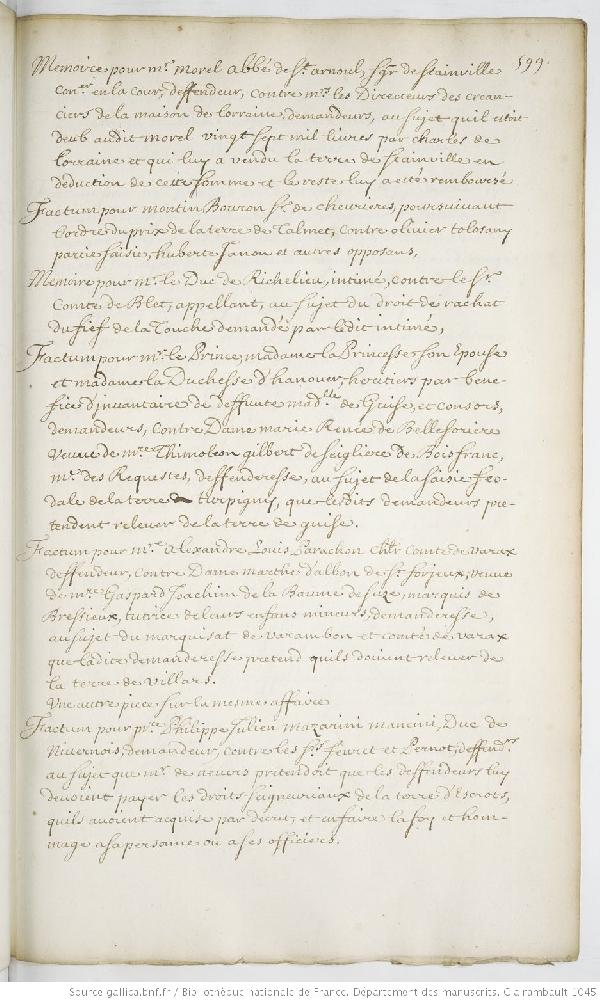 599.
Memoire pour mr. morel abbé de St. arnoul, sgr. de stainville
Coner. en la Cour, deffendeur, contre mrs. les Directeurs des crean-
ciers de la maison de lorraine, demandeurs, au sujet quil estoit
deub audit morel vingt sept mil livres par charles de
lorraine et qui luy a vendu la terre de stainville en
deduction de cette somme et le reste luy a esté remboursé
Factum pour martin Bouron sr. de chevrieres, poursuivant
lordre du prix de la terre de Talmet, contre olivier tolosany
partie saisie, huberte Janon et autres opposans,
Memoire pour mr. le Duc de Richelieu, intimé, contre le sr.
Comte de Blet, appellant, au sujet du droit de rachat
du fief de la Touche demandé par ledit intimé,
Factum pour mr. le Prince, madame la Princesse son Epouse
et madame la Duchesse d'hanover, heritiers par bene-
fice d'inventaire de deffunte madlle. de Guise, et consors,
demandeurs, Contre Dame marie Renée de Belleforiere
veuve de mre. Thimoleon gilbert de seigliere de Boisfranc,
mr. des Requestes, deffenderesse, au sujet de la saisie feo-
dale de la terre de turpigny, que lesdits demandeurs pre-
tendent relever de la terre de guise.
Factum pour mre. Alexandre Louis Parachon chlr. Comte de varax
deffendeur, contre Dame marthe d'albon de St. forjeux, veuve
de mre. Gaspard Joachim de la Baume de suze, marquis de
Bressieux, tutrice de leurs enfans mineurs, demanderesse,
au sujet du marquisat de varambon et comté de varax
que ladite demanderesse pretend quils doivent relever de
la terre de villars.
Une autre piece sur la mesme affaire
Factum pour mre. Philippe Julien mazarini mancini, Duc de
Nivernois, demandeur, contre les srs. fevret et Pernot, deffendrs.
au sujet que mr. de nevers pretendoit que les deffendeurs luy
devoient payer les droits seigneuriaux de la terre d'Escrots,
quils avoient acquise par decret, et en faire la foy et hom-
mage a sa personne ou a ses officiers.
Source gallica.bnf.fr / Bibliothèque nationale de France. Département des manuscrits. Clairambault 1045